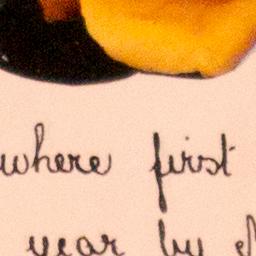 where first
year by